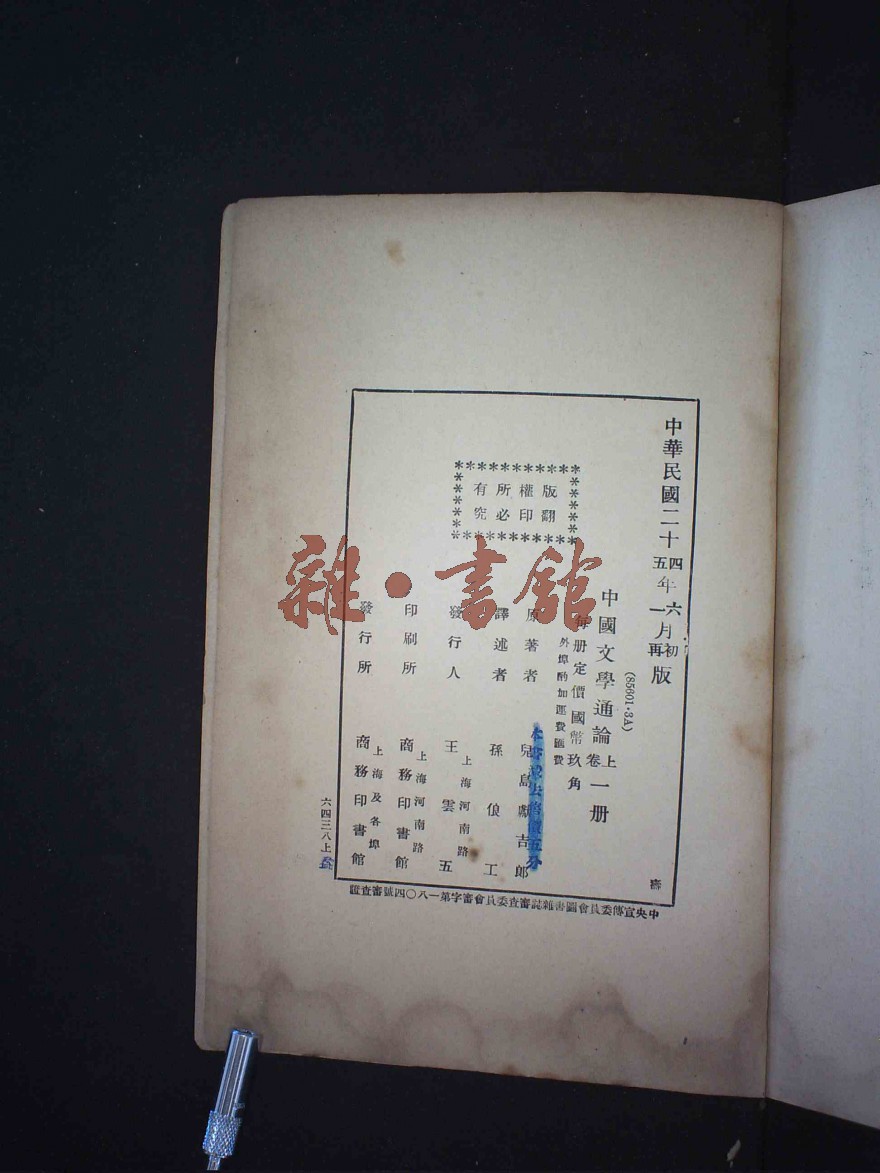 中華民國二十四年六月初版
五 一 再
(85601·3A)
中國文學通論上卷一册
每册定價國幣玖角
外埠酌加運費匯費
版權所有
翻印必究
原著者 兒島獻吉郎
譯述者 孫俍工
發行人 王雲五
上海河南路
印刷所 商務印書館
上海河南路
發行所 商務印書館
上海及各埠
六四三八上
中央宣傳委員會圖書雜誌審查委員會審字第一八〇四號審查證
雜·書館